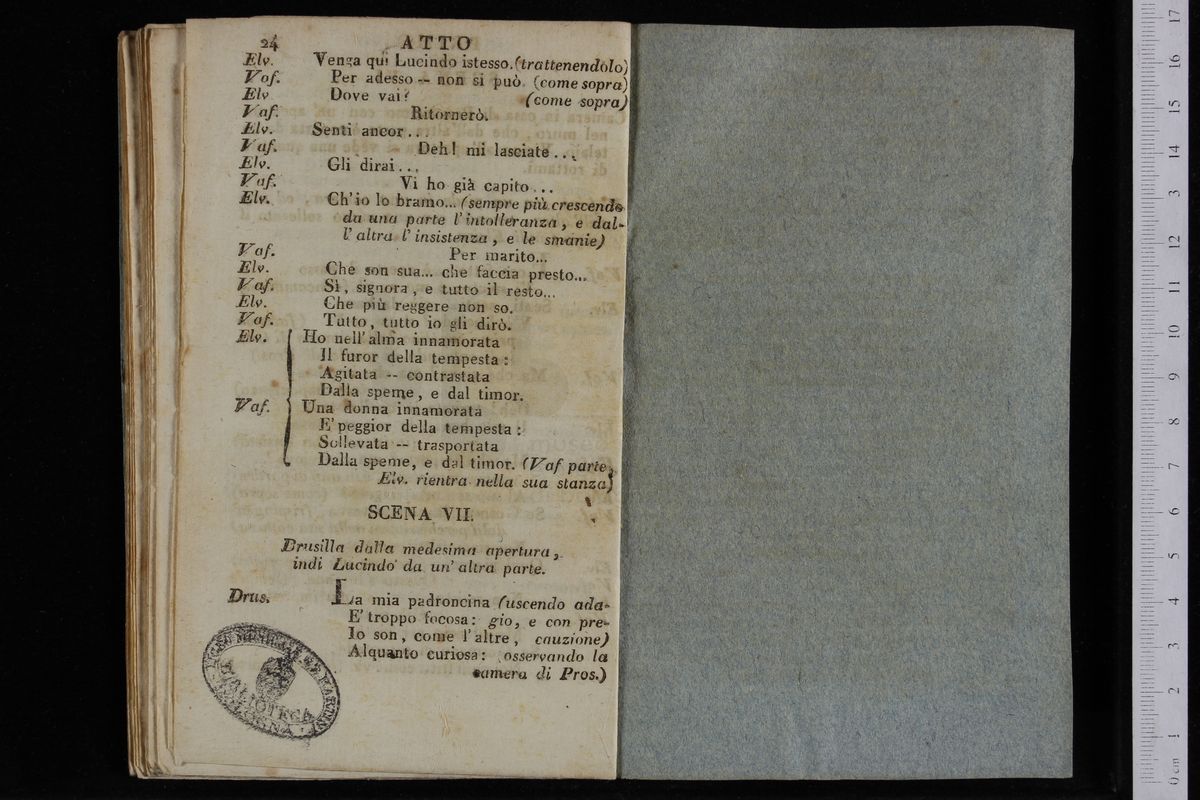 24 ATTO
Elv. Venga qui Lucindo istesso. (trattenendolo)
Vaf. Per adesso -- non si può. (come sopra)
Elv. Dove vai? (come sopra)
Vaf. Ritornerò.
Elv. Senti ancor..
Vaf. Deh! mi lasciate...
Elv. Gli dirai...
Vaf. Vi ho già capito...
Elv. Ch'io lo bramo... (sempre più crescendo
da una parte l'intolleranza, e dal-
l'altra l'insistenza, e le smanie)
Vaf. Per marito...
Elv. Che son sua... che faccia presto...
Vaf. Sì, signora, e tutto il resto...
Elv. Che più reggere non so.
Vaf. Tutto, tutto io gli dirò.
Elv. Ho nell'alma innamorata
Il furor della tempesta:
Agitata -- contrastata
Dalla speme, e dal timor.
Vaf. Una donna innamorata
E' peggior della tempesta:
Sollevata -- trasportata
Dalla speme, e dal timor. (Vaf parte,
Elv. rientra nella sua stanza)
SCENA VII.
Drusilla dalla medesima apertura,
indi Lucindo da un' altra parte.
Drus. La mia padroncina (uscendo ada-
E' troppo focosa: gio, e con pre-
Io son, come l'altre, cauzione)
Alquanto curiosa: (osservando la
camera di Pros.)
LICEO MUSICALE G.B. MARTINI
BIBLIOTECA
BOLOGNA
0 cm 1 2 3 4 5 6 7 8 9 10 11 12 13 14 15 16 17